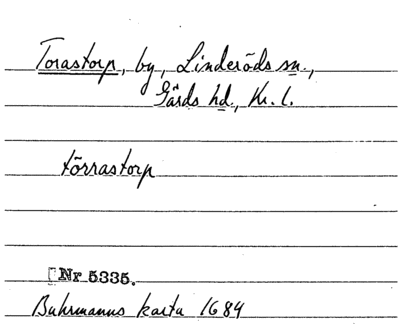 Torastorp, by, Linderöds sn.,
Gärds hd., Kr. l.
törrastorp
[Nr 5335.
Buhrmanns karta 1684